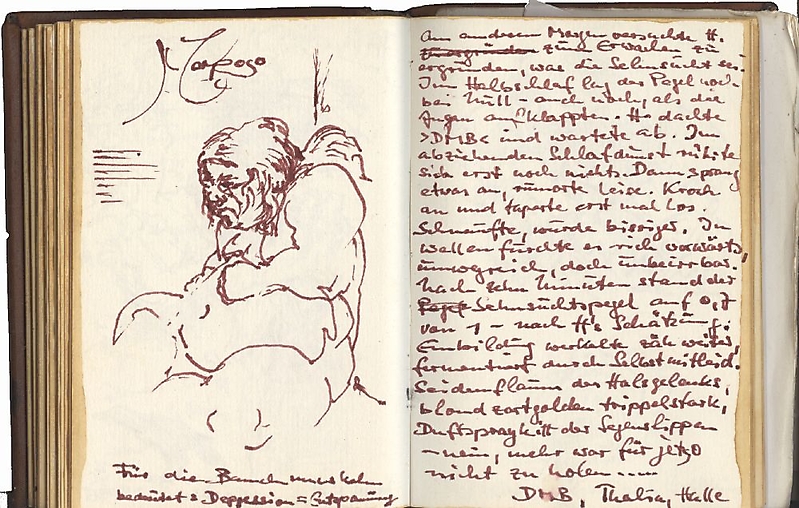 Für die Bauchmuskeln
bedeutet's Depression = Entspannung
Am anderen Morgen versuchte H.
zum Erwachen zu
ergründen, was die Sehnsucht sei.
Im Halbschlaf lag der Pegel noch
bei Null – auch noch, als die
Augen aufklappten. H. dachte
>DMB< und wartete ab. Im
abziehenden Schlafdunst rührte
sich erst noch nichts. Dann sprang
etwas an, rumorte leise. Kroch
an und taperte erst mal los.
Schnaufte, wurde bissiger. In
Wellen furchte es sich vorwärts,
doch unbeirrbar.
Nach zehn Minuten stand der
Sehnsuchtspegel auf 0,7
von 1 – nach H's Schätzung.
Einbildung werkelte zäh weiter,
fermentiert durch Selbstmitleid.
Seidenflaum des Halsgelenks,
blond zartgolden
der
– nein, mehr war für jetzo
nicht zu holen.....
DMB, Thalia, Halle